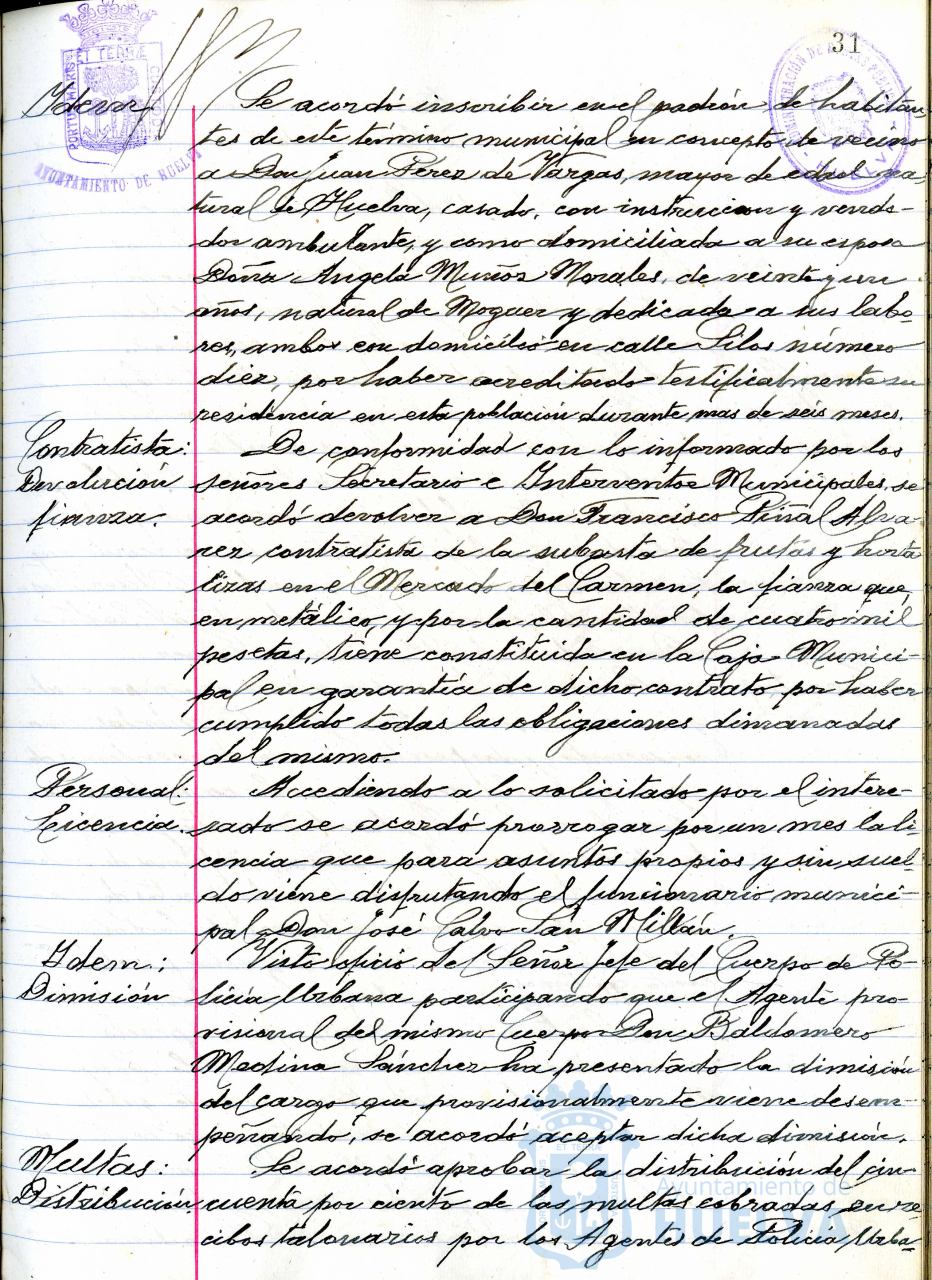 31
Idem
Se acordó inscribir en el padrón de habitan-
tes de este término municipal en concepto de vecino
a Don Juan Pérez de Vargas, mayor de edad, na-
tural de Huelva, casado, con instruccion y vende-
dor ambulante, y como domiciliada a su esposa
Doña Angela Muñoz Morales, de veintiyun
años, natural de Moguer y dedicada a sus labo-
res, ambos con domicilio en calle Silos número
diez, por haber acreditado testificalmente su
residencia en esta población durante mas de seis meses.
Contratista:
Devolución
fianza.
De conformidad con lo informado por los
señores Secretario e Interventor Municipales, se
acordó devolver a Don Francisco Piñal Alva-
rez contratista de la subasta de frutas y horta
lizas en el Mercado del Carmen, la fianza que,
en metálico, y por la cantidad de cuatro mil
pesetas, tiene constituida en la Caja Munici-
pal en garantía de dicho contrato, por haber
cumplido todas las obligaciones dimanadas
del mismo.
Personal:
Licencia.
Accediendo a lo solicitado por el intere-
sado se acordó prorrogar por un mes la li-
cencia que para asuntos propios y sin suel-
do viene disfrutando el funcionario munici-
pal Don José Calvo San Millán.
Idem:
Dimisión
Visto oficio del Señor Jefe del Cuerpo de Po-
licía Urbana participando que el Agente pro-
visional del mismo Cuerpo Don Baldomero
Medina Sánchez ha presentado la dimisión
del cargo que provisionalmente viene desem-
peñando, se acordó aceptar dicha dimisión.
Multas:
Distribución.
Se acordó aprobar la distribución del cin-
cuenta por ciento de las multas cobradas en re
cibos talonarios por los Agentes de Policía Urba-
AYUNTAMIENTO DE HUELVA
Ayuntamiento de
HUELVA